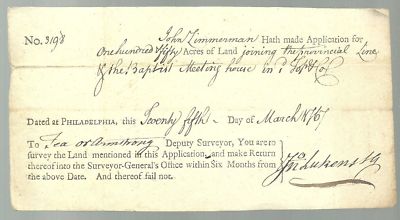 No. 3198 John Zimmerman Hath made Application for
One hundred fifty Acres of Land joining the provincial Line
& the Baptist Meeting house in
Dated at PHILADELPHIA, this Twenty fifth Day of March 1767
To Tea or Armstrong Deputy Surveyor, You are to
survey the Land mentioned in this Application, and make Return
thereof into the Surveyor-General's Office within Six Months from
the above Date. And thereof fail not.
Jno Lukens SG